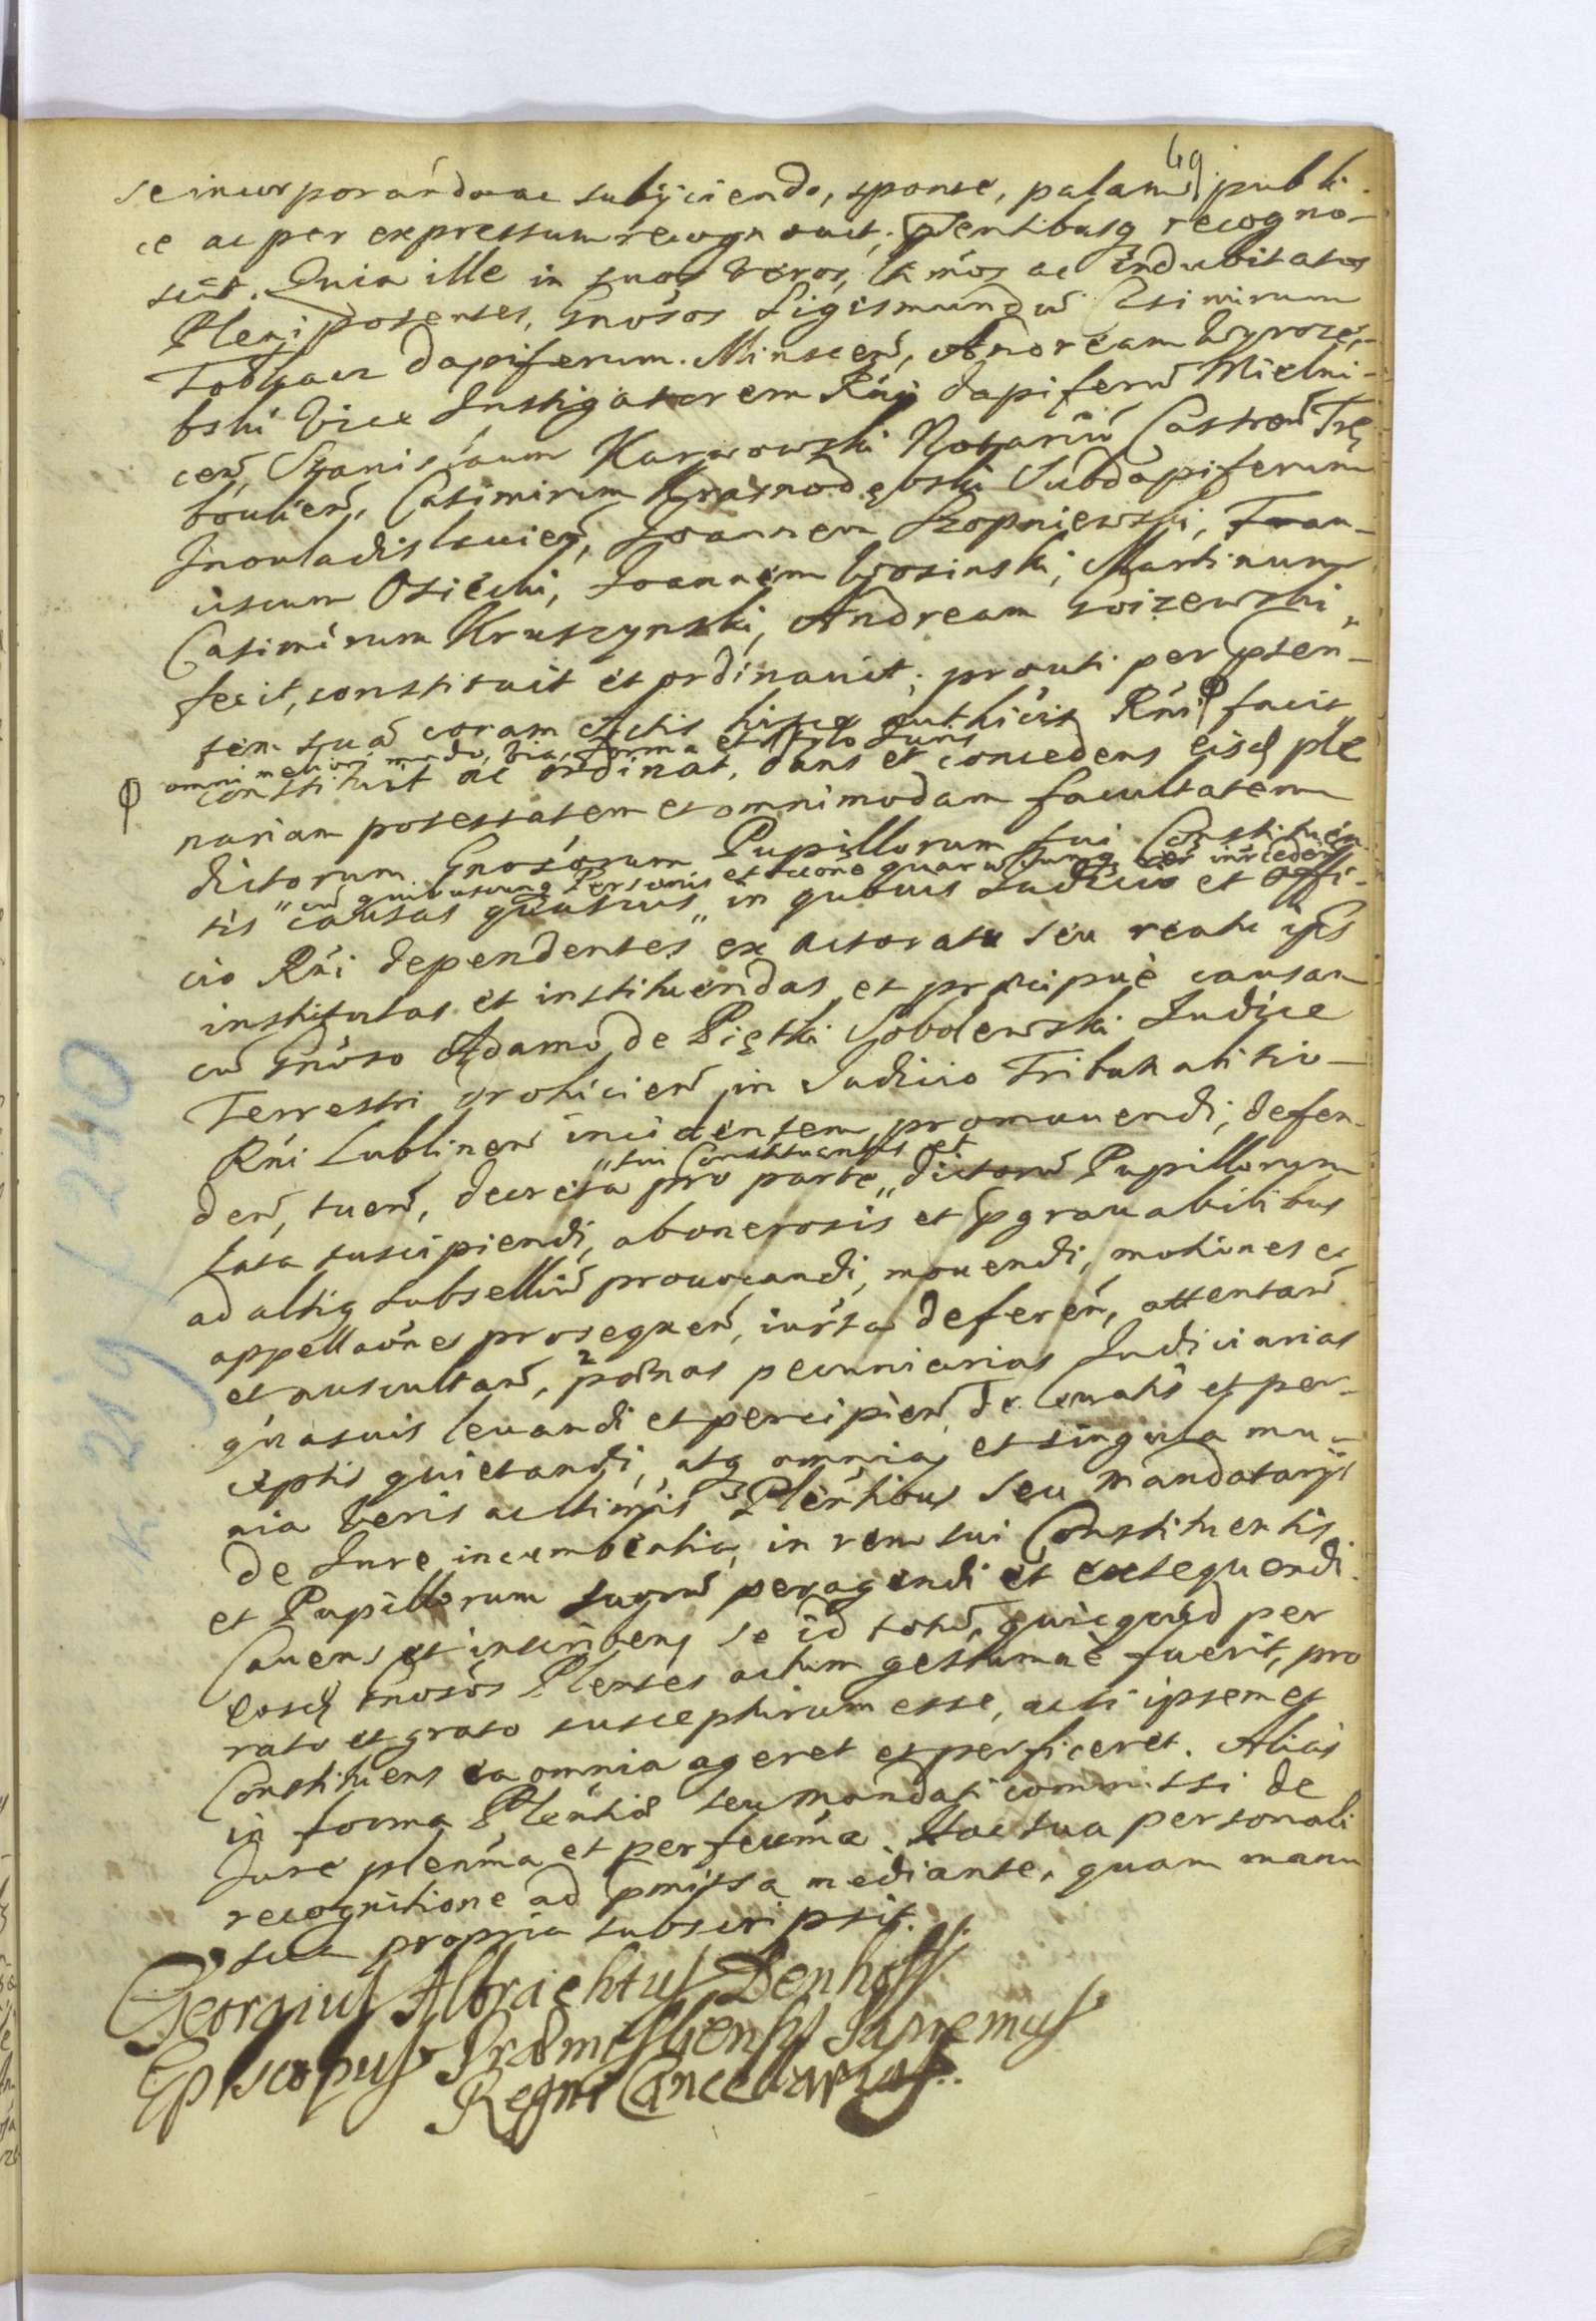 49
se incorporando ac subijciendo, sponte, palam publi
ce ac per expressum recognouit, pñtibusq recogno-
scit. Quia ille in suos veros, ltimos ac indubitatos
Plenipotentes, Gnosos Sigismundũ Casimirum
dapiferum Minscen̄, Andream Wyrozę-
bski Vice Instigatorem Rñi dapiferũ Mielni-
cen̄, Stanislaum Karwowski Notariũ Castren̄ Trę
boulien̄, Casimirum Krasnodębski Subdapiferum
Inouladislauien̄, Joannem Szopniewski, Fran-
ciscum Osiecki, Joannem Wosinski, Martinum
Casimirum Kruszynski, Andream
fecit, constituit et ordinauit, prouti per pñsen-
tem suã coram Actis hisce authticis Rñi ϕ facit
ϕ omni meliori modo, via, forma et stylo Juris
constituit ac ordinat, dans et concedens eisd ple
nariam potestatem et omnimodam facultatem
dictorum Gnosorum Pupillorum sui Constituen
" cũ quibuscunq Personis et rãone quarũcunq rer̄ incedẽn
tis " causas quasuis " in quouis Judicio et offi-
cio Rñi dependentes " ex actoratu seu reatu ipŝ
institutas et instituendas et prćipuè causam
cũ Gnoso Adamo de Piętki Sobolewski Judice
Terrestri Drohicien̄ in Judicio Tribunalitio
Rñi Lublinen̄ incidentem, promouendi, defen-
" sui Constituentis et
den̄, tuen̄, decreta pro parte " dictorũ Pupillorum
lata suscipiendi, ab onerosis et pgrauabilibus
ad altiq subselliũ prouocandi, mouendi, motiones et
appellaõnes prosequen̄, iurŝta deferen̄, attentan̄
et auscultan̄, pœnas pecuniarias Judiciarias
quasuis leuandi et percipien̄ de leuatis et per-
ceptis quietandi, atq omnia et singula mu-
nia veris ac ltimis Pleñtibus seu mandatarijs
de Jure incumbentia, in rem sui Constituentis
et Pupillorum suorũ peragendi et exequendi.
Cauens et inscribens se id totũ, quicquid per
eosd Gnosos Plentes actum gestumue fuerit, pro
rato et grato suscepturum esse, acsi ipsemet
Constituens ea omnia ageret et perficeret. Aliàs
in forma Plentiæ seu mandati commissi de
Jure plenm̃a et perfecm̃a. Hac sua personali
recognitione ad pmissa mediante, quam manu
sua propria subscripsit.
Georgius Albrachtus Denhoff
Episcopus Præmisliensis Supremus
Regni Cancellarius.
K. 219 / 240